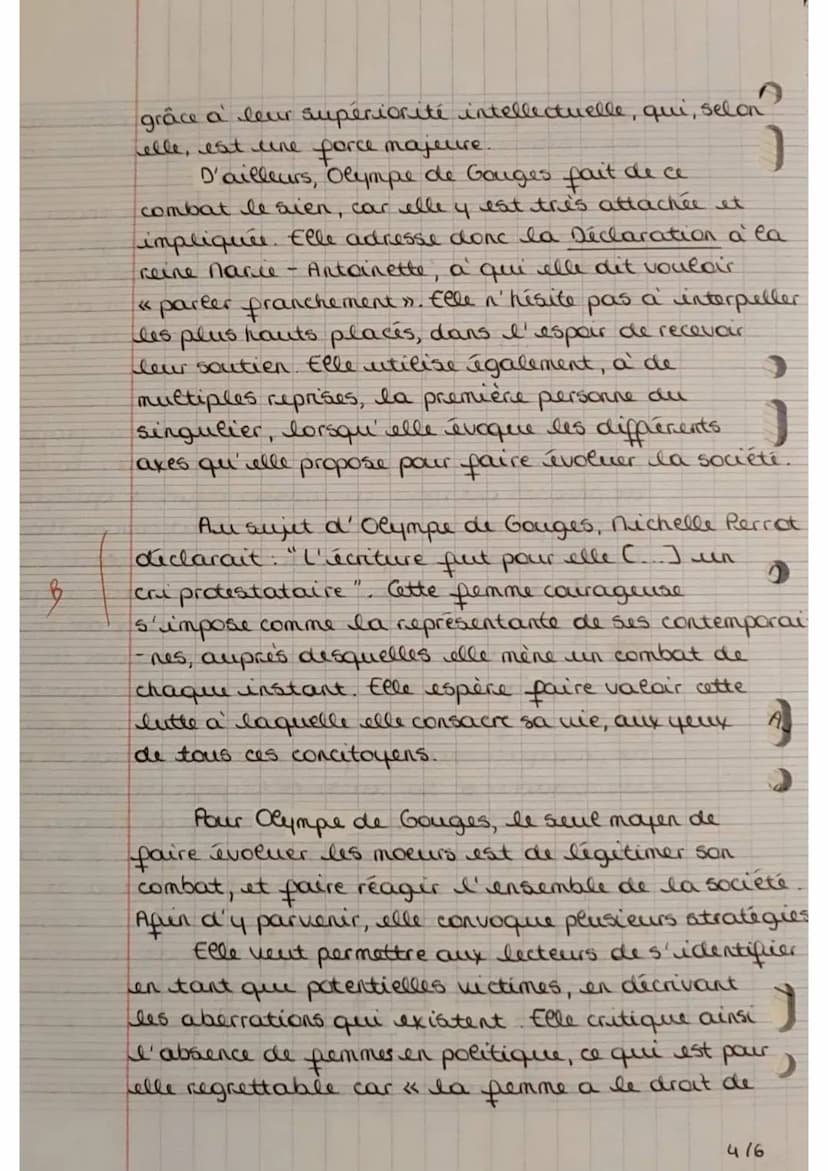 grâce à leur supériorité intellectuelle, qui, selon
elle, est une force majeure.
D'ailleurs, Olympe de Gouges fait de ce
combat le sien, car elle y est très attachée et
impliquée. Elle adresse donc la Déclaration à la
reine Marie-Antoinette, à qui elle dit vouloir
« parler franchement ». Elle n'hésite pas à interpeller
les plus hauts placés, dans l'espoir de recevoir
leur soutien. Elle utilise également, à de
multiples reprises, la première personne du
singulier, lorsqu'elle évoque les différents
axes qu'elle propose pour faire évoluer la société.
Au sujet d'Olympe de Gouges, Michelle Perrot
déclarait : "L'écriture fut pour elle [...] un
B
cri protestataire". Cette femme courageuse
s'impose comme la représentante de ses contemporai
-nes, auprès desquelles elle mène un combat de
chaque instant. Elle espère faire valoir cette
lutte à laquelle elle consacre sa vie, aux yeux
de tous ces concitoyens.
Pour Olympe de Gouges, le seul moyen de
faire évoluer les moeurs est de légitimer son
combat, et faire réagir l'ensemble de la société.
Afin d'y parvenir, elle convoque plusieurs stratégies
Elle veut permettre aux lecteurs de s'identifier
en tant que potentielles victimes, en décrivant
les aberrations qui existent. Elle critique ainsi
l'absence de femmes en politique, ce qui est pour
elle regrettable car « la femme a le droit de
4/6